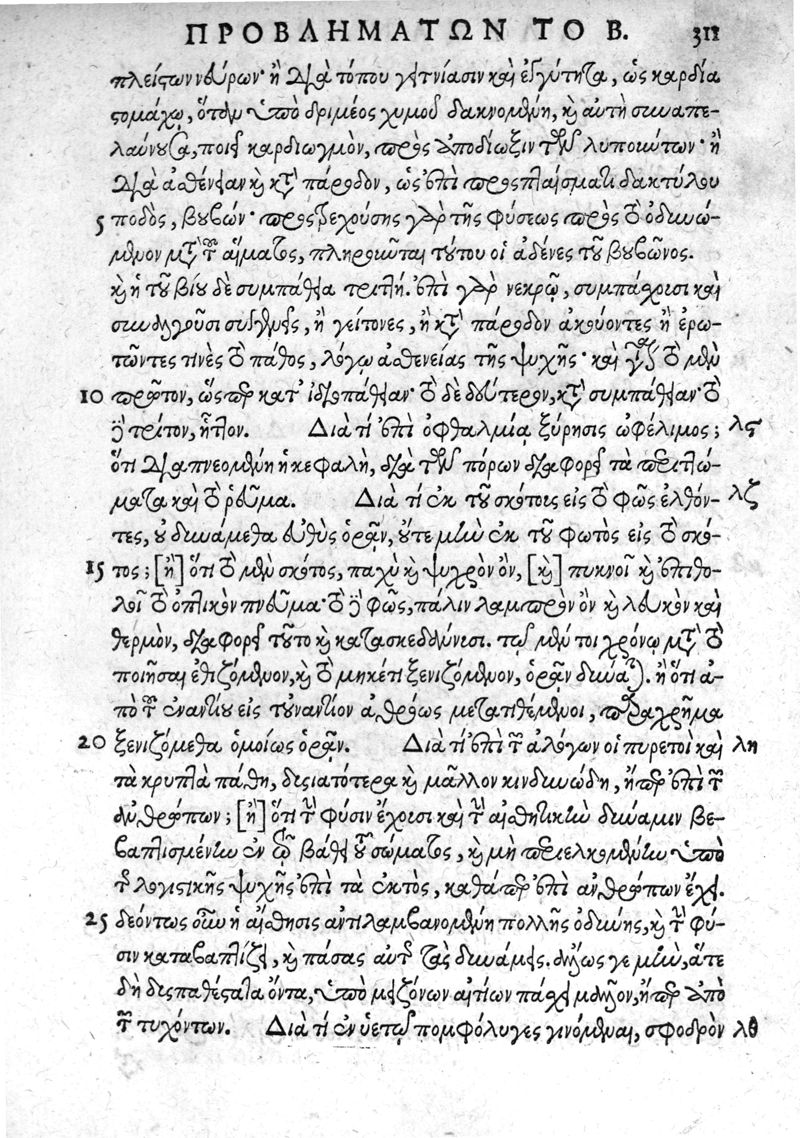 ΠΡΟΒΛΗΜΑΤΩΝ ΤΟ Β. 311
πλείστων νεύρων· ἢ διὰ τόπου γειτνίασιν καὶ ἐγγύτητα, ὡς καρδία
στομάχῳ, ὅταν ὑπὸ δριμέος χυμοῦ δακνομένη, καὶ αὐτὴ συναπε-
λαύνουσα, ποιεῖ καρδιωγμὸν, πρὸς ἀποδίωξιν τῶν λυπούντων· ἢ
διὰ ἀσθένειαν καὶ κατὰ πάροδον, ὡς ἐπὶ προσπταίσματι δακτύλου
5 ποδὸς, βουβών· προστρεχούσης γὰρ τῆς φύσεως πρὸς τὸ ὀδυνώ-
μενον μετὰ τοῦ αἵματος, πληροῦνται τούτου οἱ ἀδένες τοῦ βουβῶνος.
καὶ ἡ τοῦ βίου δὲ συμπάθεια τριττή. ἐπὶ γὰρ νεκρῷ, συμπάσχουσι καὶ
συναλγοῦσι συγγενεῖς, ἢ γείτονες, ἢ κατὰ πάροδον ἀκούοντες ἢ ἐρω-
τῶντες τινὲς τὸ πάθος, λόγῳ ἀσθενείας τῆς ψυχῆς· καὶ γὰρ τὸ μὲν
10 πρῶτον, ὥσπερ κατ' ἰδιοπάθειαν· τὸ δὲ δεύτερον, κατὰ συμπάθειαν· τὸ
δὲ τρίτον, ἧττον. Διὰ τί ἐπὶ ὀφθαλμίᾳ ξύρησις ὠφέλιμος; λϛ
ὅτι διαπνεομένη ἡ κεφαλὴ, διὰ τῶν πόρων διαφορεῖ τὰ περιττώ-
ματα καὶ τὸ ῥεῦμα. Διὰ τί ἐκ τοῦ σκότους εἰς τὸ φῶς ἐλθόν- λζ
τες, οὐ δυνάμεθα εὐθὺς ὁρᾷν, οὔτε μὴν ἐκ τοῦ φωτὸς εἰς τὸ σκό-
15 τος; [ἢ] ὅτι τὸ μὲν σκότος, παχὺ καὶ ψυχρὸν ὂν, [καὶ] πυκνοῖ καὶ ἐπιθο-
λοῖ τὸ ὀπτικὸν πνεῦμα· τὸ δὲ φῶς, πάλιν λαμπρὸν ὂν καὶ λευκὸν καὶ
θερμὸν, διαφορεῖ τοῦτο καὶ κατασκεδάννυσι. τῷ μέν τοι χρόνῳ μετὰ τὸ
ποιῆσαι ἐθιζόμενον, καὶ τὸ μηκέτι ξενιζόμενον, ὁρᾷν δύναται. ἢ ὅτι ἀ-
πὸ τοῦ ἐναντίου εἰς τοὐναντίον ἀθρόως μετατιθέμενοι, παραχρῆμα
20 ξενιζόμεθα ὁμοίως ὁρᾷν. Διὰ τί ἐπὶ τῶν ἀλόγων οἱ πυρετοὶ καὶ λη
τὰ κρυπτὰ πάθη, δυσιατότερα καὶ μᾶλλον κινδυνώδη, ἤπερ ἐπὶ τῶν
ἀνθρώπων; [ἢ] ὅτι τὴν φύσιν ἔχουσι καὶ τὴν αἰσθητικὴν δύναμιν βε-
βαπτισμένην ἐν τῷ βάθει τοῦ σώματος, καὶ μὴ περιελκομένην ὑπὸ
τῆς λογιστικῆς ψυχῆς ἐπὶ τὰ ἐκτὸς, καθάπερ ἐπὶ ἀνθρώπων ἔχει.
25 δεόντως οὖν ἡ αἴσθησις ἀντιλαμβανομένη πολλῆς ὀδύνης, καὶ τὴν φύ-
σιν καταβαπτίζει, καὶ πάσας αὐτῆς τὰς δυνάμεις. ἄλλως γε μὴν, ἅτε
δὴ δυσπαθέστατα ὄντα, ὑπὸ μειζόνων αἰτίων πάσχει μᾶλλον, ἤπερ ἀπὸ
τῶν τυχόντων. Διὰ τί ἐν ὑετῷ πομφόλυγες γινόμεναι, σφοδρὸν λθ